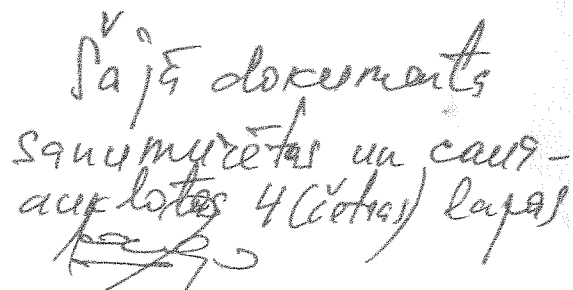 Šajā dokumentā
sanumurētas un caur-
auklotas 4 (četras) lapas